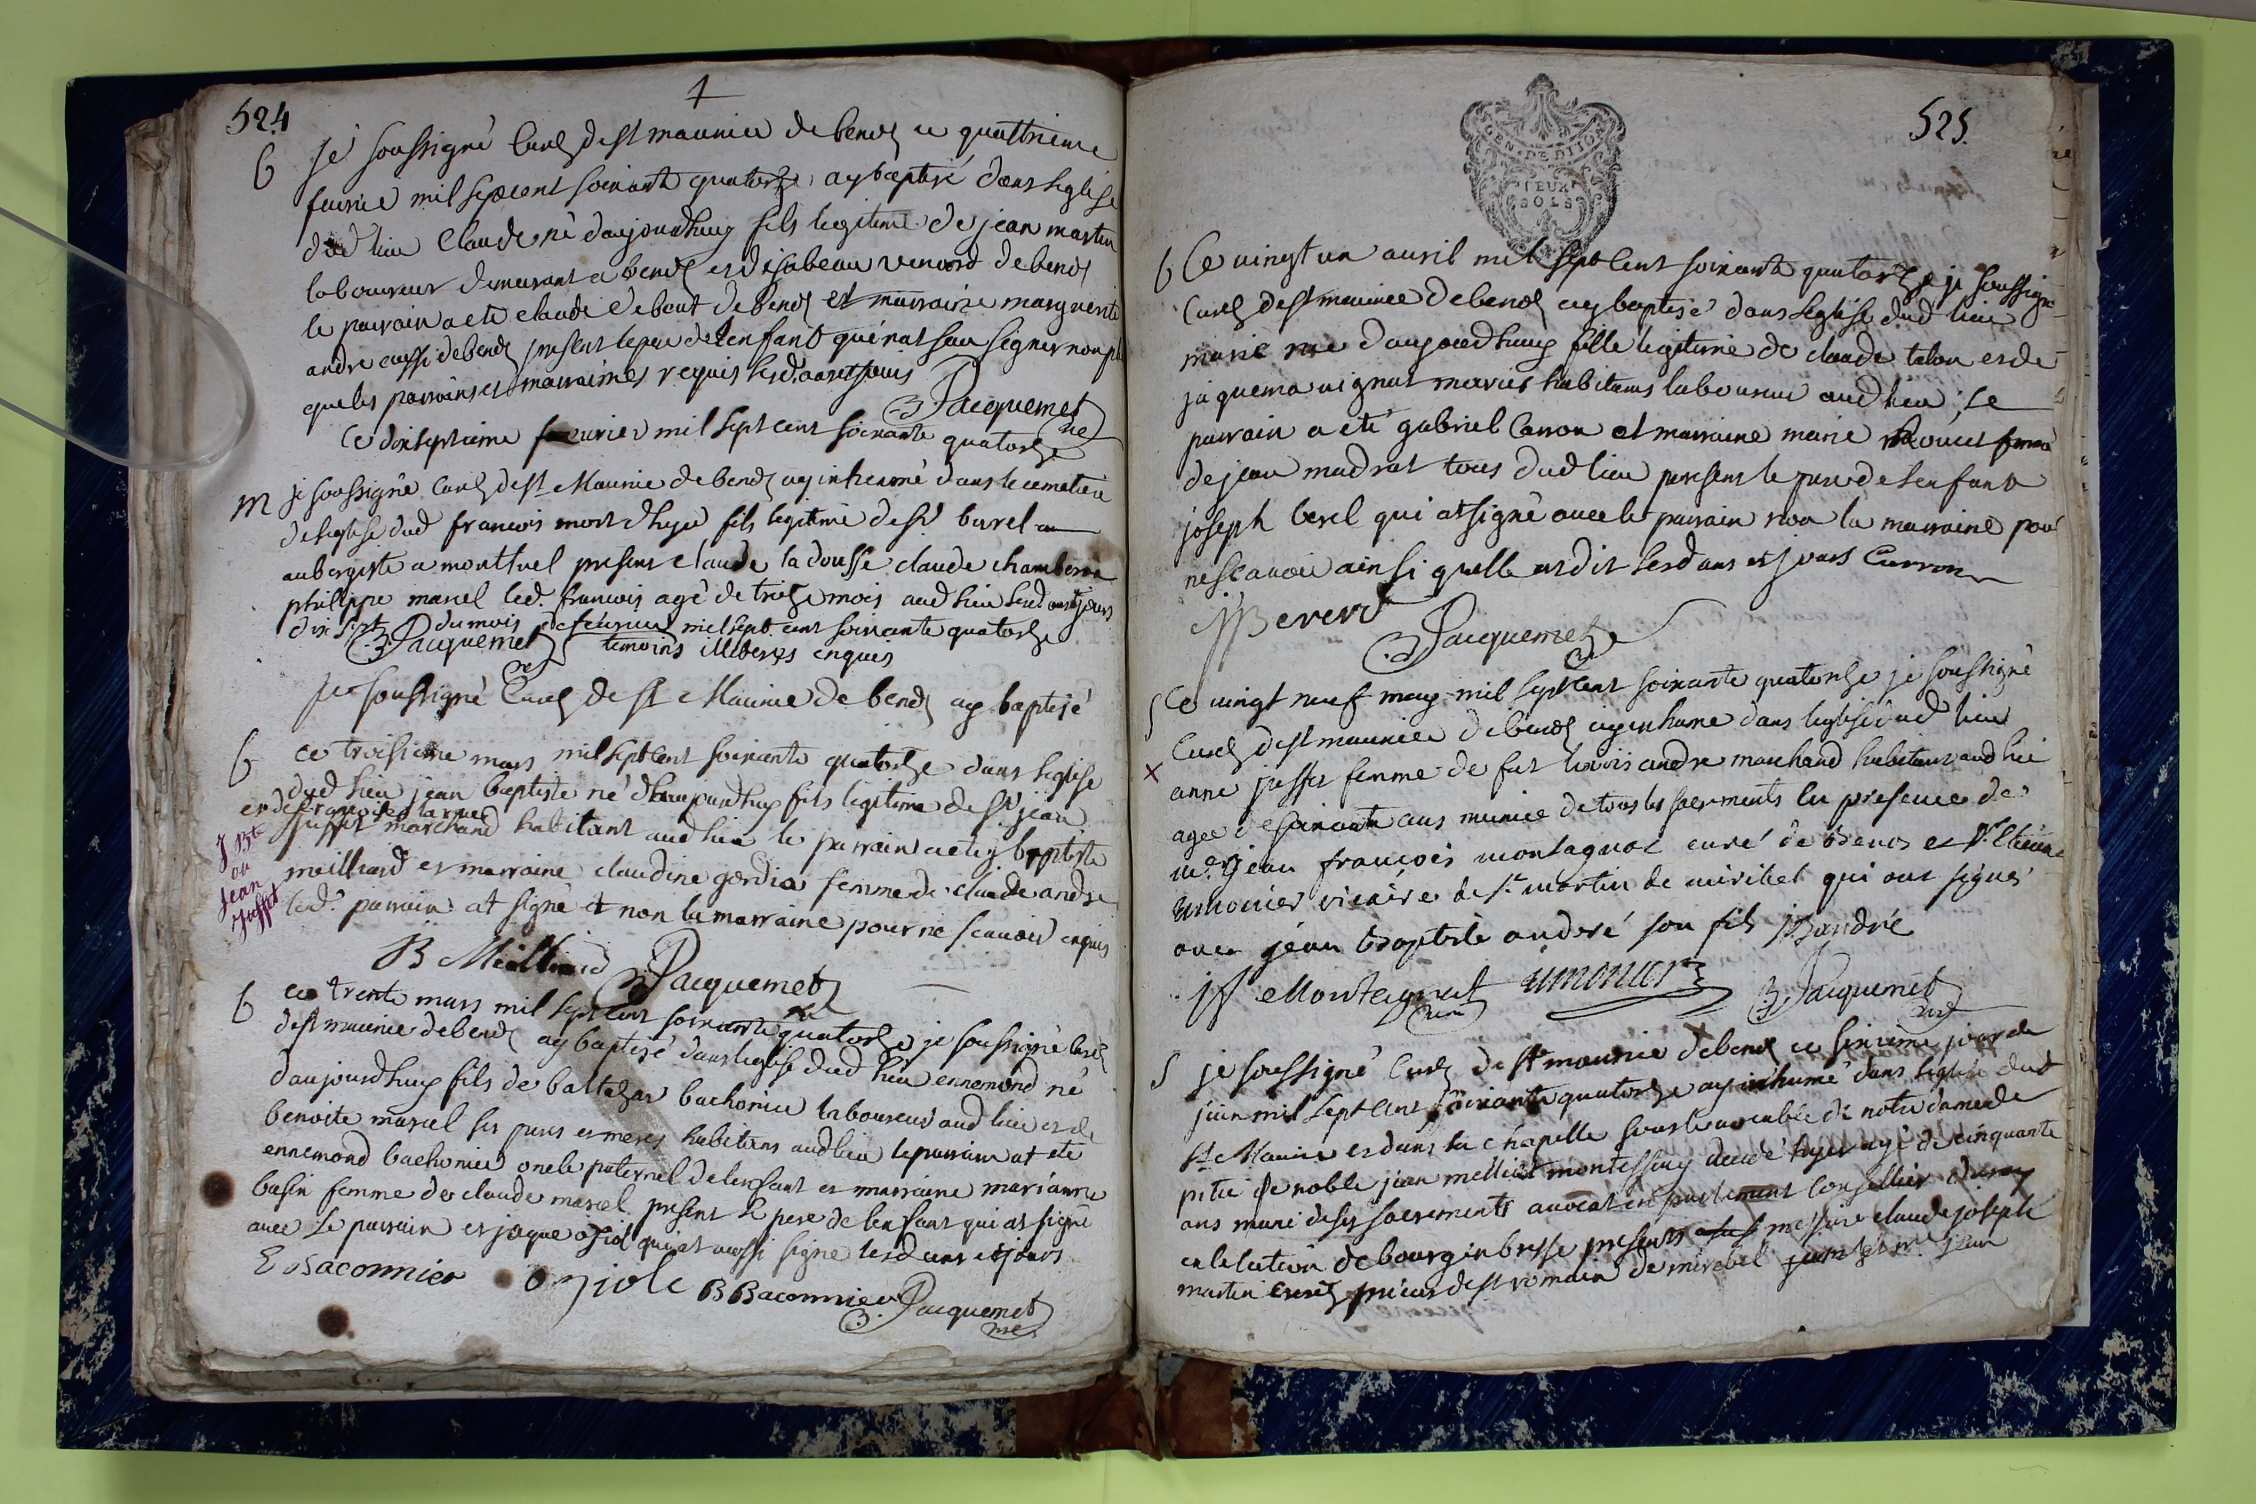 524
b je soussigné Curé de st maurice de benos ce quattrieme
feuvrié mil septcent soixante quatorze ay baptisé dans leglise
dud lieu Claude né daujourdhuy fils legitime de jean martin
laboureur demeurant a benos et disabeau venord de benos
le parrain a eté claude debeut de benos et marraine marguerite
andre aussi de benos present le pere de lenfant qui nat sceu signer non plus
que les parrains et marraines requis lesd. an et jours
Jacquemet
cre
Ce dixseptieme feuvrier mil sept cent soixante quatorze
m je soussigné Curé de st Maurice de benos ay inhumé dans le cemetiere
de leglise dud francois mort dhyer fils legitime de sr burel
aubergiste a montluel presens claude la dousse claude chamberre
philippe marcel led. francois agé de treize mois aud lieu lesd ans et jours
dix sept du mois de feuvrier mil sept cent soixante quatorze
Jacquemet temoins illiteres enquis
cre
je soussigné Curé de st Maurice de benos ay baptisé
b ce troisieme mars mil sept cent soixante quatorze dans leglise
dud lieu jean baptiste né daujourdhuy fils legitime de sr jean
et de francoise larue
juffet marchand habitant aud lieu le parrain a eté j baptiste
J Bte
ou
Jean
Juffet
meilliard et marraine claudine gordia femme de claude andre
led. parrain at signé et non la marraine pour ne scauoir enquis
JB Meilliard Jacquemet
cre
b ce trente mars mil sept cent soixante quatorze je soussigné Curé
de st maurice de benos ay baptisé dans leglise dud lieu ennemond né
daujourdhuy fils de baltazar bachonier laboureur aud lieu et de
benoite marcel ses peres et meres habitans aud lieu le parrain at eté
ennemond bachonier oncle paternel de lenfant et marraine marianne
basin femme de claude marcel present le pere de lenfant qui at signé
avec le parrain et jaque ojiol qui at aussi signé lesd ans et jours
E Baconnier onjiole B Baconnier Jacquemet
cre
525.
GEN. DE DIJON
DEUX
SOLS
b Ce vingt un avril mil sept cent soixante quatorze je soussigné
Curé de st maurice de benos ay baptisé dans leglise dud lieu
marie née daujourdhuy fille legitime de claude talon et de
jaquema uignat mariés habitans laboureur aud lieu ; le
parrain a eté gabriel Carron et marraine marie femme
de jean madrat tous dud lieu presens le pere de lenfant
joseph berel qui at signé avec le parrain non la marraine pour
ne scavoir ainsi quelle at dit lesd ans et jours Carron
J Bererd
Jacquemet
cre
S Ce vingt neuf may mil sept cent soixante quatorze je soussigné
Curé de st maurice de benos ay inhumé dans leglise dud lieu
x anne juffet femme de fut louis andre marchand habitant aud lieu
agee de soixante ans munie de tous les sacrements en presence de
mre jean françois montagnat curé de benos et sr. Etienne
umonier vicaire de st martin de miribel qui ont signés
avec jean baptiste andré son fils JBandré
jf Montagnat umonier Jacquemet
cure cre
S je soussigné Curé de st maurice de benos ce sixieme jour de
juin mil sept cent soixante quatorze ay inhumé dans leglise dud
st Maurice et dans la chapelle sous le vocable de notre dame de
pitié de noble jean melliet montessuy decedé hyer agé de cinquante
ans muni de ses sacrements avocat en parlement Conseiller du roy
en lelection de bourg en bresse presents messire claude joseph
martin curé prieur de st romain de mirebel et mr. jean